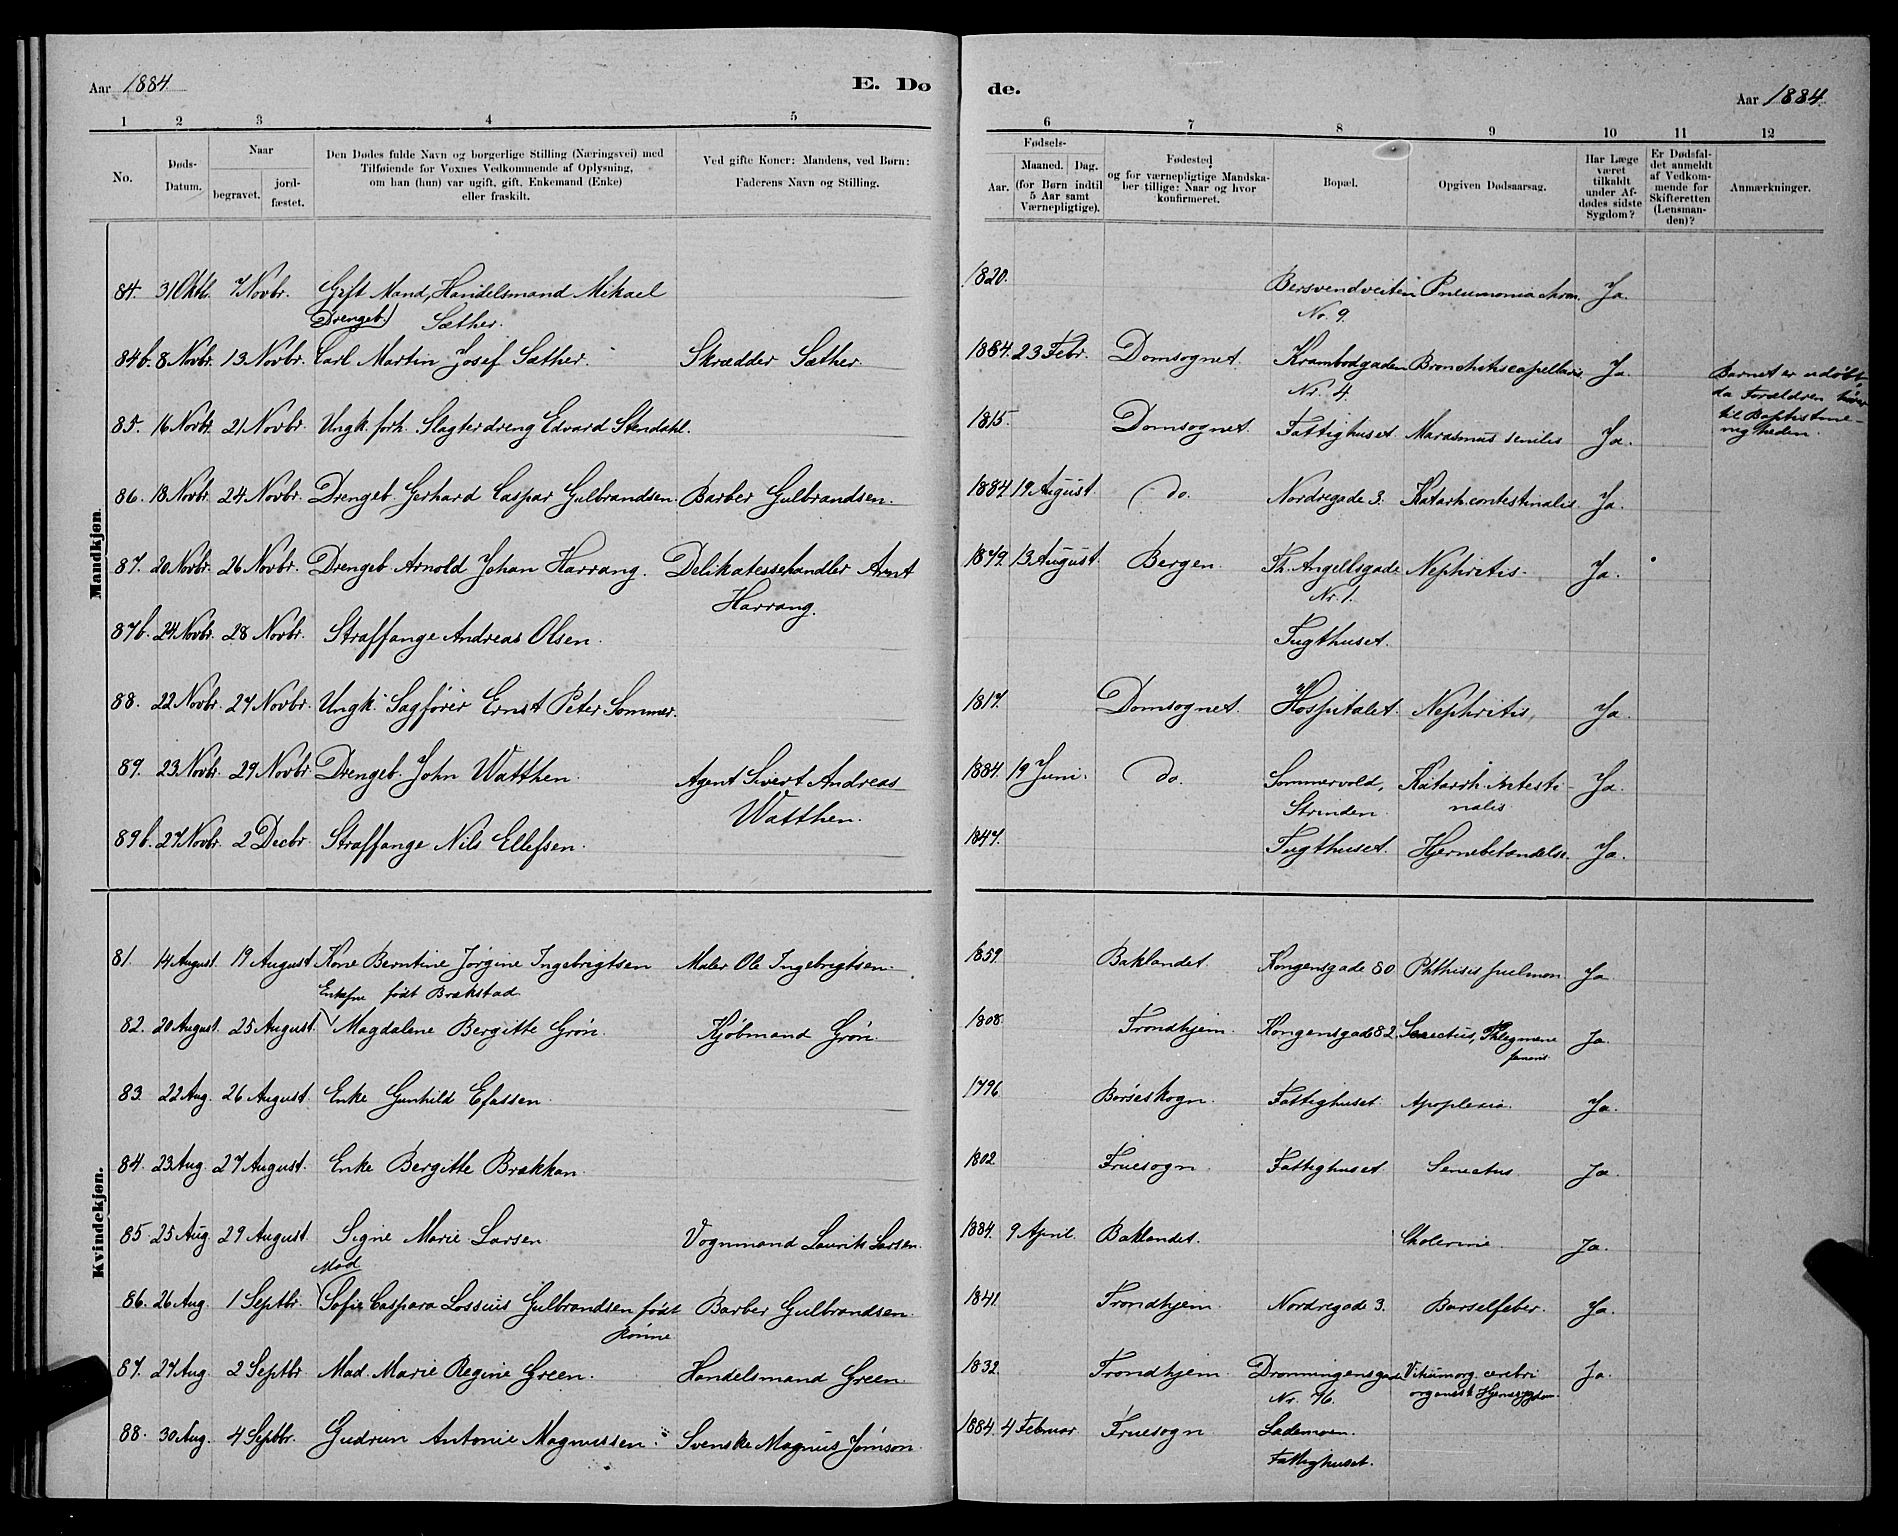 Aar 1884. E. Dø de. Aar 1884.
1 2 3 4 5 6 7 8 9 10 11 12
No.
Døds-
Datum.
Naar
begravet.
jord-
fæstet.
Den Dødes fulde Navn og borgerlige Stilling (Næringsvei) med
Tilføiende for Voxnes Vedkommende af Oplysning,
om han (hun) var ugift, gift, Enkemand (Enke)
eller fraskilt.
Ved gifte Koner: Mandens, ved Børn:
Faderens Navn og Stilling.
Fødsels-
Aar.
Maaned. Dag.
(for Børn indtil
5 Aar samt
Værnepligtige).
Fødested
og for værnepligtige Mandska-
ber tillige: Naar og hvor
konfirmeret.
Bopæl.
Opgiven Dødsaarsag.
Har Læge
været
tilkaldt
under Af-
dødes sidste
Sygdom?
Er Dødsfal-
det anmeldt
af Vedkom-
mende for
Skifteretten
(Lensman-
den)?
Anmærkninger.
Mandkjøn.
84. 31 Oktb. 7 Novbr. Gift Mand, Handelsmand Mikael 1820. Bersvendveiten Pneumonia chron. Ja.
Sæther. No. 9.
Drengeb.
84b. 8 Novbr. 13 Novbr. Carl Martin Josef Sæther. Skrædder Sæther. 1884. 23 Febr. Domsognet. Krambodgaden Bronchitis capillaris Ja.
Nr. 4.
Barnet er udøbt
da Forældren hører
til Baptistme-
nigheden.
85. 16 Novbr. 21 Novbr. Ungk. forh. Slagterdreng Edvard Stendahl. 1815. Domsognet. Fattighuset. Marasmus senilis Ja.
86. 18 Novbr. 24 Novbr. Drengeb. Gerhard Caspar Gulbrandsen. Barber Gulbrandsen. 1884. 19 August. do. Nordregade 3. Katarh. contestinalis. Ja.
87. 20 Novbr. 26 Novbr. Drengeb. Arnold Johan Harrang. Delikatessehandler Arnt 1879. 13 August. Bergen. Th. Angellsgade Nephritis. Ja.
Harrang. Nr. 1.
87b. 24 Novbr. 28 Novbr. Straffange Andreas Olsen. Tugthuset.
88. 22 Novbr. 27 Novbr. Ungk. Sagfører Ernst Peter Sommer. 1817. Domsognet. Hospitalet. Nephritis, Ja.
89. 23 Novbr. 29 Novbr. Drengeb. John Watthen. Agent Sivert Andreas 1884. 19 Juni. do. Sommervold, Katarrh. intesti- Ja.
Watthen. Strinden. nalis
89b. 27 Novbr. 2 Decbr. Straffange Nils Ellefsen. 1847. Tugthuset. Hjernebetændelse. Ja.
Kvindekjøn.
81. 14 August. 19 August Kone Berntine Jørgine Ingebrigtsen Maler Ole Ingebrigtsen. 1859. Baklandet. Kongensgade 80 Phthisis pulmon. Ja
født Brækstad.
82. 20 August. 25 August. Magdalene Bergitte Grøn. Kjøbmand Grøn. 1808. Trondhjem. Kongensgade 82. Senectus, Phlegmone Ja.
83. 22 Aug. 26 August. Enke Gunhild Efassen. 1796. Børseskogn. Fattighuset. Apoplexia. Ja.
84. 23 Aug. 27 August. Enke Bergitte Brækkan. 1802. Fruesogn. Fattighuset. Senectus Ja.
85. 25 Aug. 29 August. Signe Marie Larsen. Vognmand Laurits Larsen. 1884. 9 April. Baklandet. Cholerine. Ja.
Mad
86. 26 Aug. 1 Septbr. Sofie Caspara Lossius Gulbrandsen født Barber Gulbrandsen. 1841. Trondhjem. Nordregade 3. Barselfeber. Ja.
Rønne
87. 27 Aug. 2 Septbr. Mad. Marie Regine Green. Handelsmand Green. 1832. Trondhjem. Dronningensgade Vitium org. cerebri Ja.
Nr. 76. organisk Hjernesygdom.
88. 30 Aug. 4 Septbr. Gudrun Antonie Magnussen. Svenske Magnus Jonson. 1884. 4 Februar. Fruesogn Lademoen.
Fattighuset.